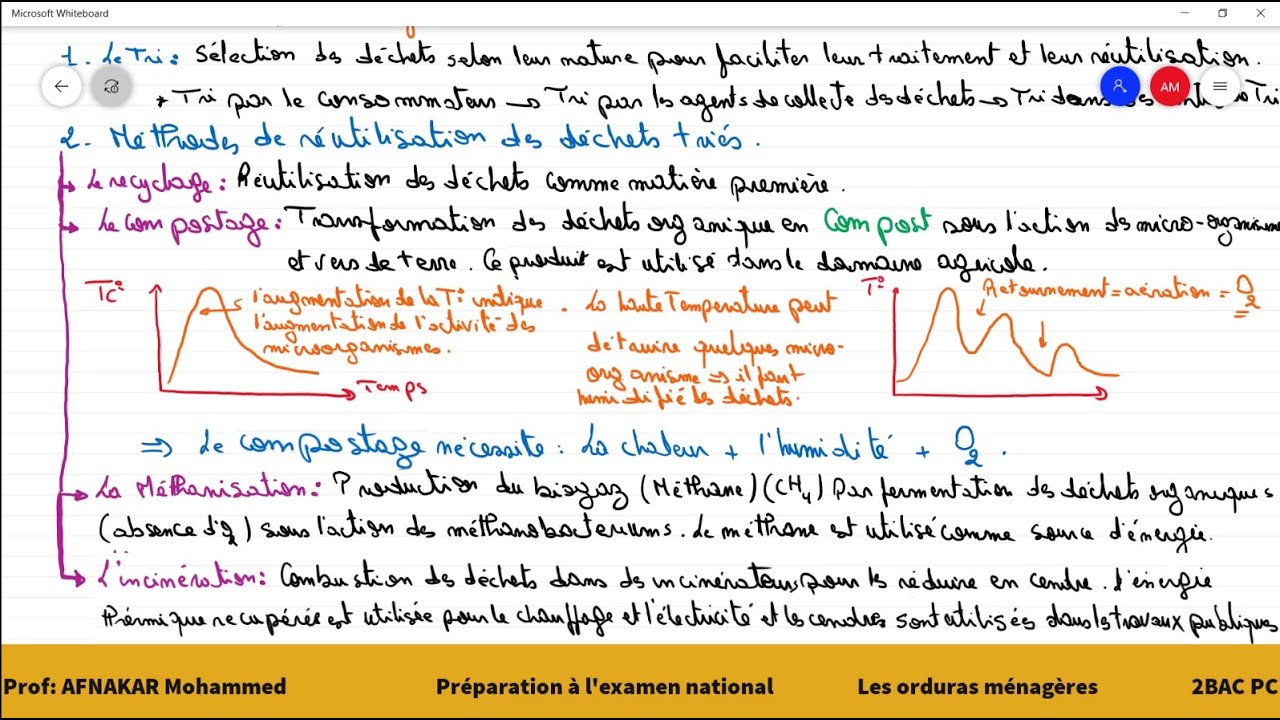 Microsoft Whiteboard
1. Le Tri : Sélection des déchets selon leur nature pour faciliter leur traitement et leur réutilisation.
* Tri par le consommateur → Tri par les agents de collecte des déchets → Tri dans Tri
AM
2. Méthodes de réutilisation des déchets triés.
Le recyclage : Réutilisation des déchets comme matière première.
Le compostage : Transformation des déchets organique en Compost sous l'action des micro-organismes
et vers de terre. Ce produit est utilisé dans le domaine agricole.
TC°
l'augmentation de la T° indique
l'augmentation de l'activité des
microorganismes.
Temps
. La haute Temperature peut
détruire quelques micro-
organisme => il faut
humidifié les déchets.
T°
Retournement = aération = O2
=> Le compostage nécessite : La chaleur + l'humidité + O2.
La Méthanisation : Production du biogaz (Méthane) (CH4) Par fermentation des déchets organiques
(absence d'O2) sous l'action des méthanobacteriums. Le méthane est utilisé comme source d'énergie.
L'incinération : Combustion des déchets dans des incinérateurs pour les réduire en cendre. l'énergie
thérmique recupérée est utilisée pour le chauffage et l'électricité et les cendres sont utilisés dans les travaux publiques
Prof: AFNAKAR Mohammed Préparation à l'examen national Les orduras ménagères 2BAC PC